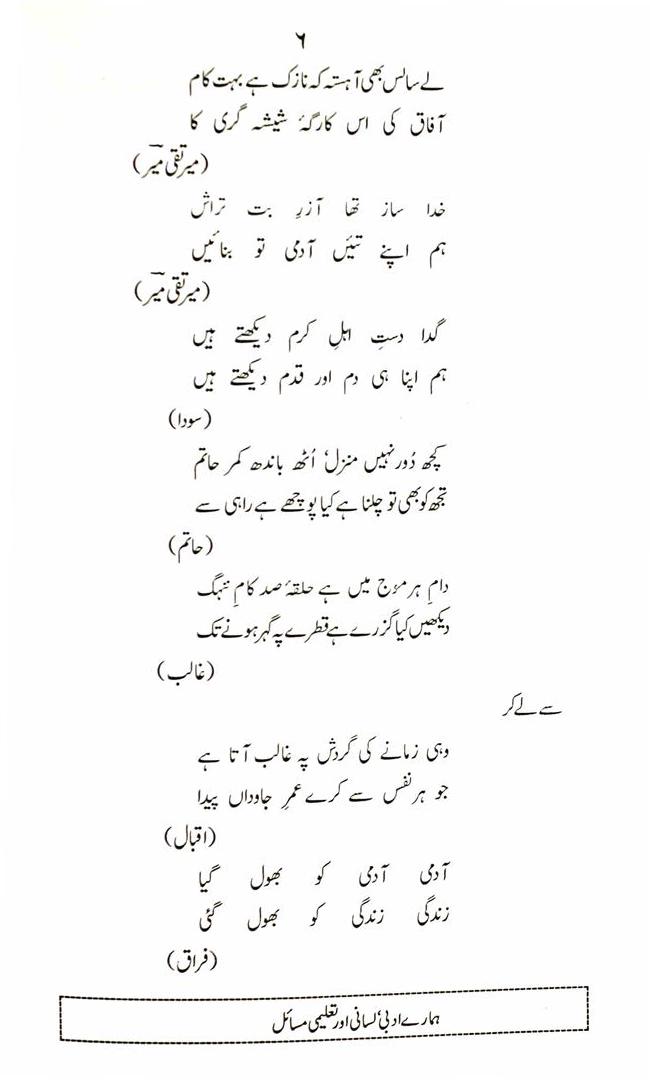 ۶
لے سانس بھی آہستہ کہ نازک ہے بہت کام
آفاق کی اس کارگۂِ شیشہ گری کا
(میر تقی میرؔ)
خدا ساز تھا آزرِ بت تراش
ہم اپنے تئیں آدمی تو بنائیں
(میر تقی میرؔ)
گدا دستِ اہلِ کرم دیکھتے ہیں
ہم اپنا ہی دم اور قدم دیکھتے ہیں
(سودا)
کچھ دُور نہیں منزل، اُٹھ باندھ کمر حاتم
تجھ کو بھی تو چلنا ہے کیا پوچھے ہے راہی سے
(حاتم)
دامِ ہر موج میں ہے حلقۂ صد کامِ نہنگ
دیکھیں کیا گزرے ہے قطرے پہ گہر ہونے تک
(غالب)
سے لے کر
وہی زمانے کی گردش پہ غالب آتا ہے
جو ہر نفس سے کرے عمرِ جاوداں پیدا
(اقبال)
آدمی آدمی کو بھول گیا
زندگی زندگی کو بھول گئی
(فراق)
ہمارے ادبی، لسانی اور تعلیمی مسائل